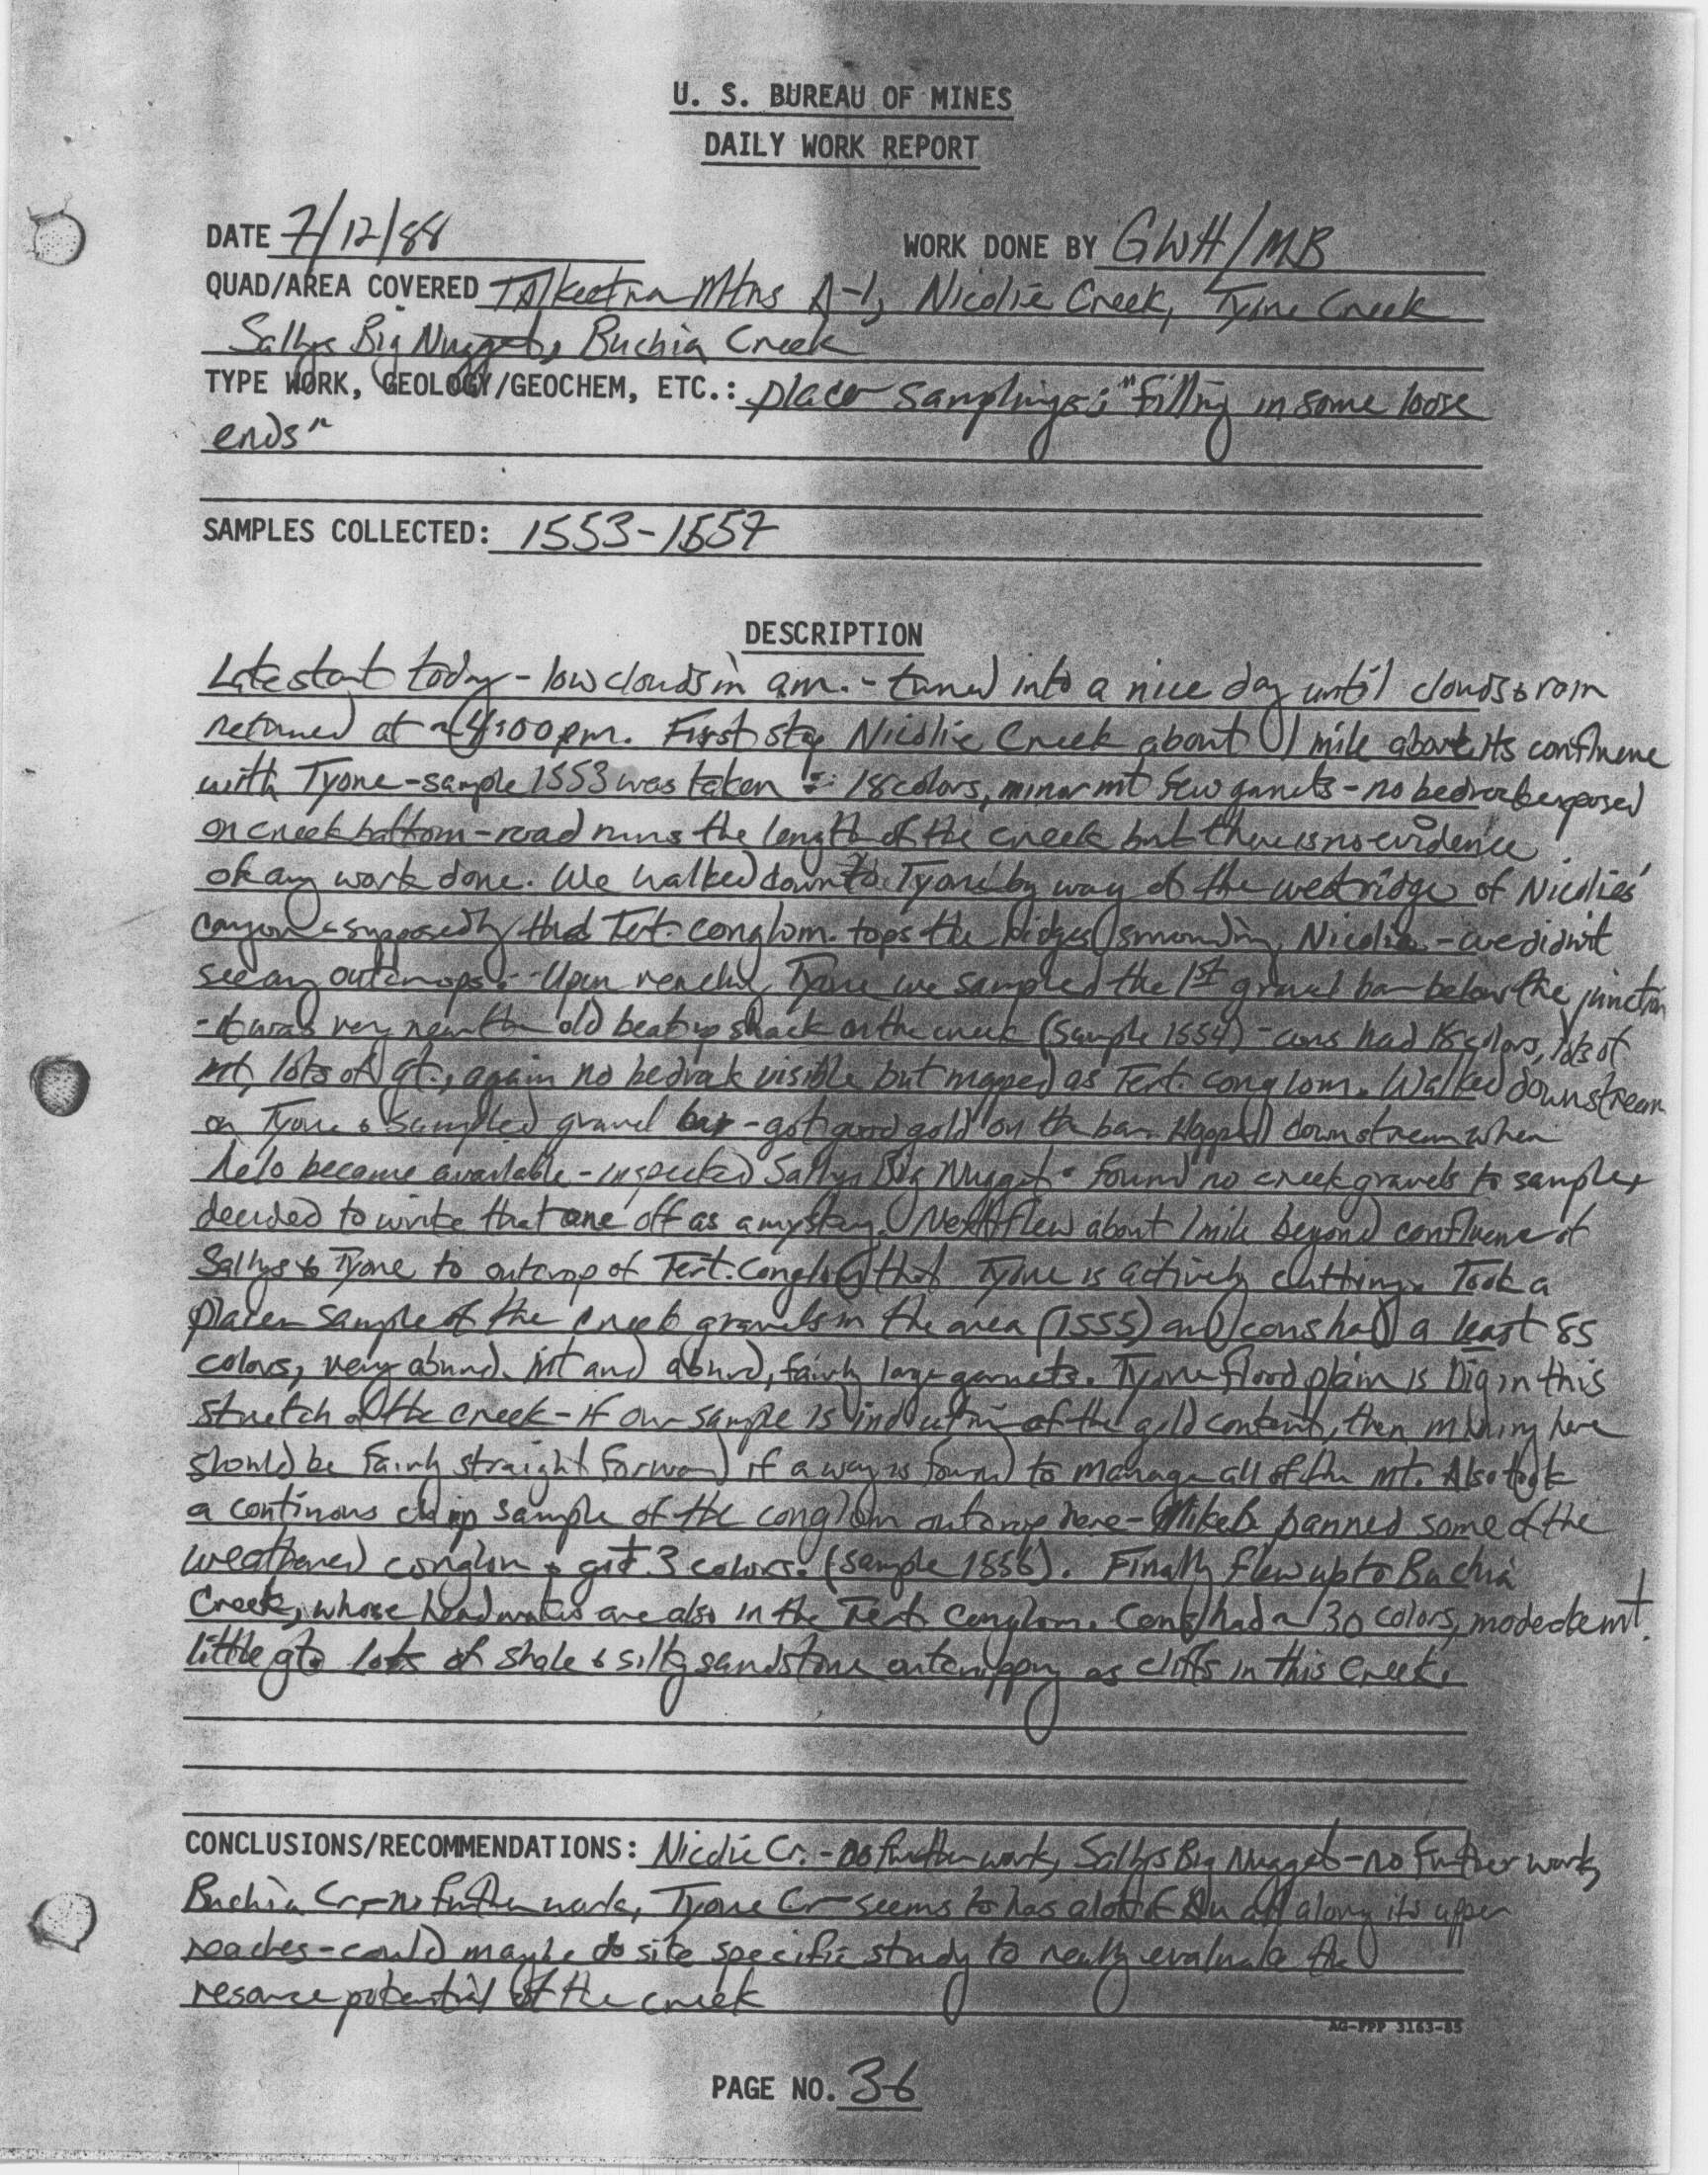 U. S. BUREAU OF MINES
DAILY WORK REPORT
DATE 7/12/88
WORK DONE BY GWH/MB
QUAD/AREA COVERED Talkeetna Mtns A-1, Nicolie Creek, Tyone Creek
Sallys Big Nugget, Buchia Creek
TYPE WORK, GEOLOGY/GEOCHEM, ETC.: placer sampling; "filling in some loose
ends"
SAMPLES COLLECTED: 1553-1557
DESCRIPTION
Late start today - low clouds in am. - turned into a nice day until clouds & rain
returned at ~4:00 pm. First stop Nicolie Creek about 1 mile above its confluence
with Tyone - sample 1553 was taken : 18 colors, minor mt few garnets - no bedrock exposed
on creek bottom - road runs the length of the creek but there is no evidence
of any work done. We walked down to Tyone by way of the west ridge of Nicolies'
canyon - supposedly that Tert. conglom. tops the ridges surrounding Nicolie - we didn't
see any outcrops. Upon reaching Tyone we sampled the 1st gravel bar below the junction
- it was very near the old beat up shack on the creek (sample 1554) - cons had 18 colors, lots of
mt, lots of gt., again no bedrock visible but mapped as Tert. conglom. Walked downstream
on Tyone & sampled gravel bar - got good gold on the bar. Hopped downstream when
helo became available - inspected Sallys Big Nugget - found no creek gravels to sample,
decided to write that one off as a mystery. Next flew about 1 mile beyond confluence of
Sallys & Tyone to outcrop of Tert. conglom that Tyone is actively cutting. Took a
placer sample of the creek gravels in the area (1555) and cons had a least 85
colors, very abund. mt and abund, fairly large garnets. Tyone flood plain is big in this
stretch of the creek - if our sample is indicative of the gold content, then mining here
should be fairly straight forward if a way is found to manage all of the mt. Also took
a continous chip sample of the conglom outcrop here - Mike B panned some of the
weathered conglom & got 3 colors. (sample 1556). Finally flew up to Buchia
Creek, whose headwaters are also in the Tert. Conglom. Cons had ~ 30 colors, moderate mt.
little gt. lots of shale & silty sandstone outcropping as cliffs in this creek.
CONCLUSIONS/RECOMMENDATIONS: Nicolie Cr. - no further work, Sallys Big Nugget - no further work,
Buchia Cr. - no further work, Tyone Cr - seems to has alot of Au all along its upper
reaches - could maybe do site specific study to really evaluate the
resource potential of the creek
AG-FPP 3163-85
PAGE NO. 36